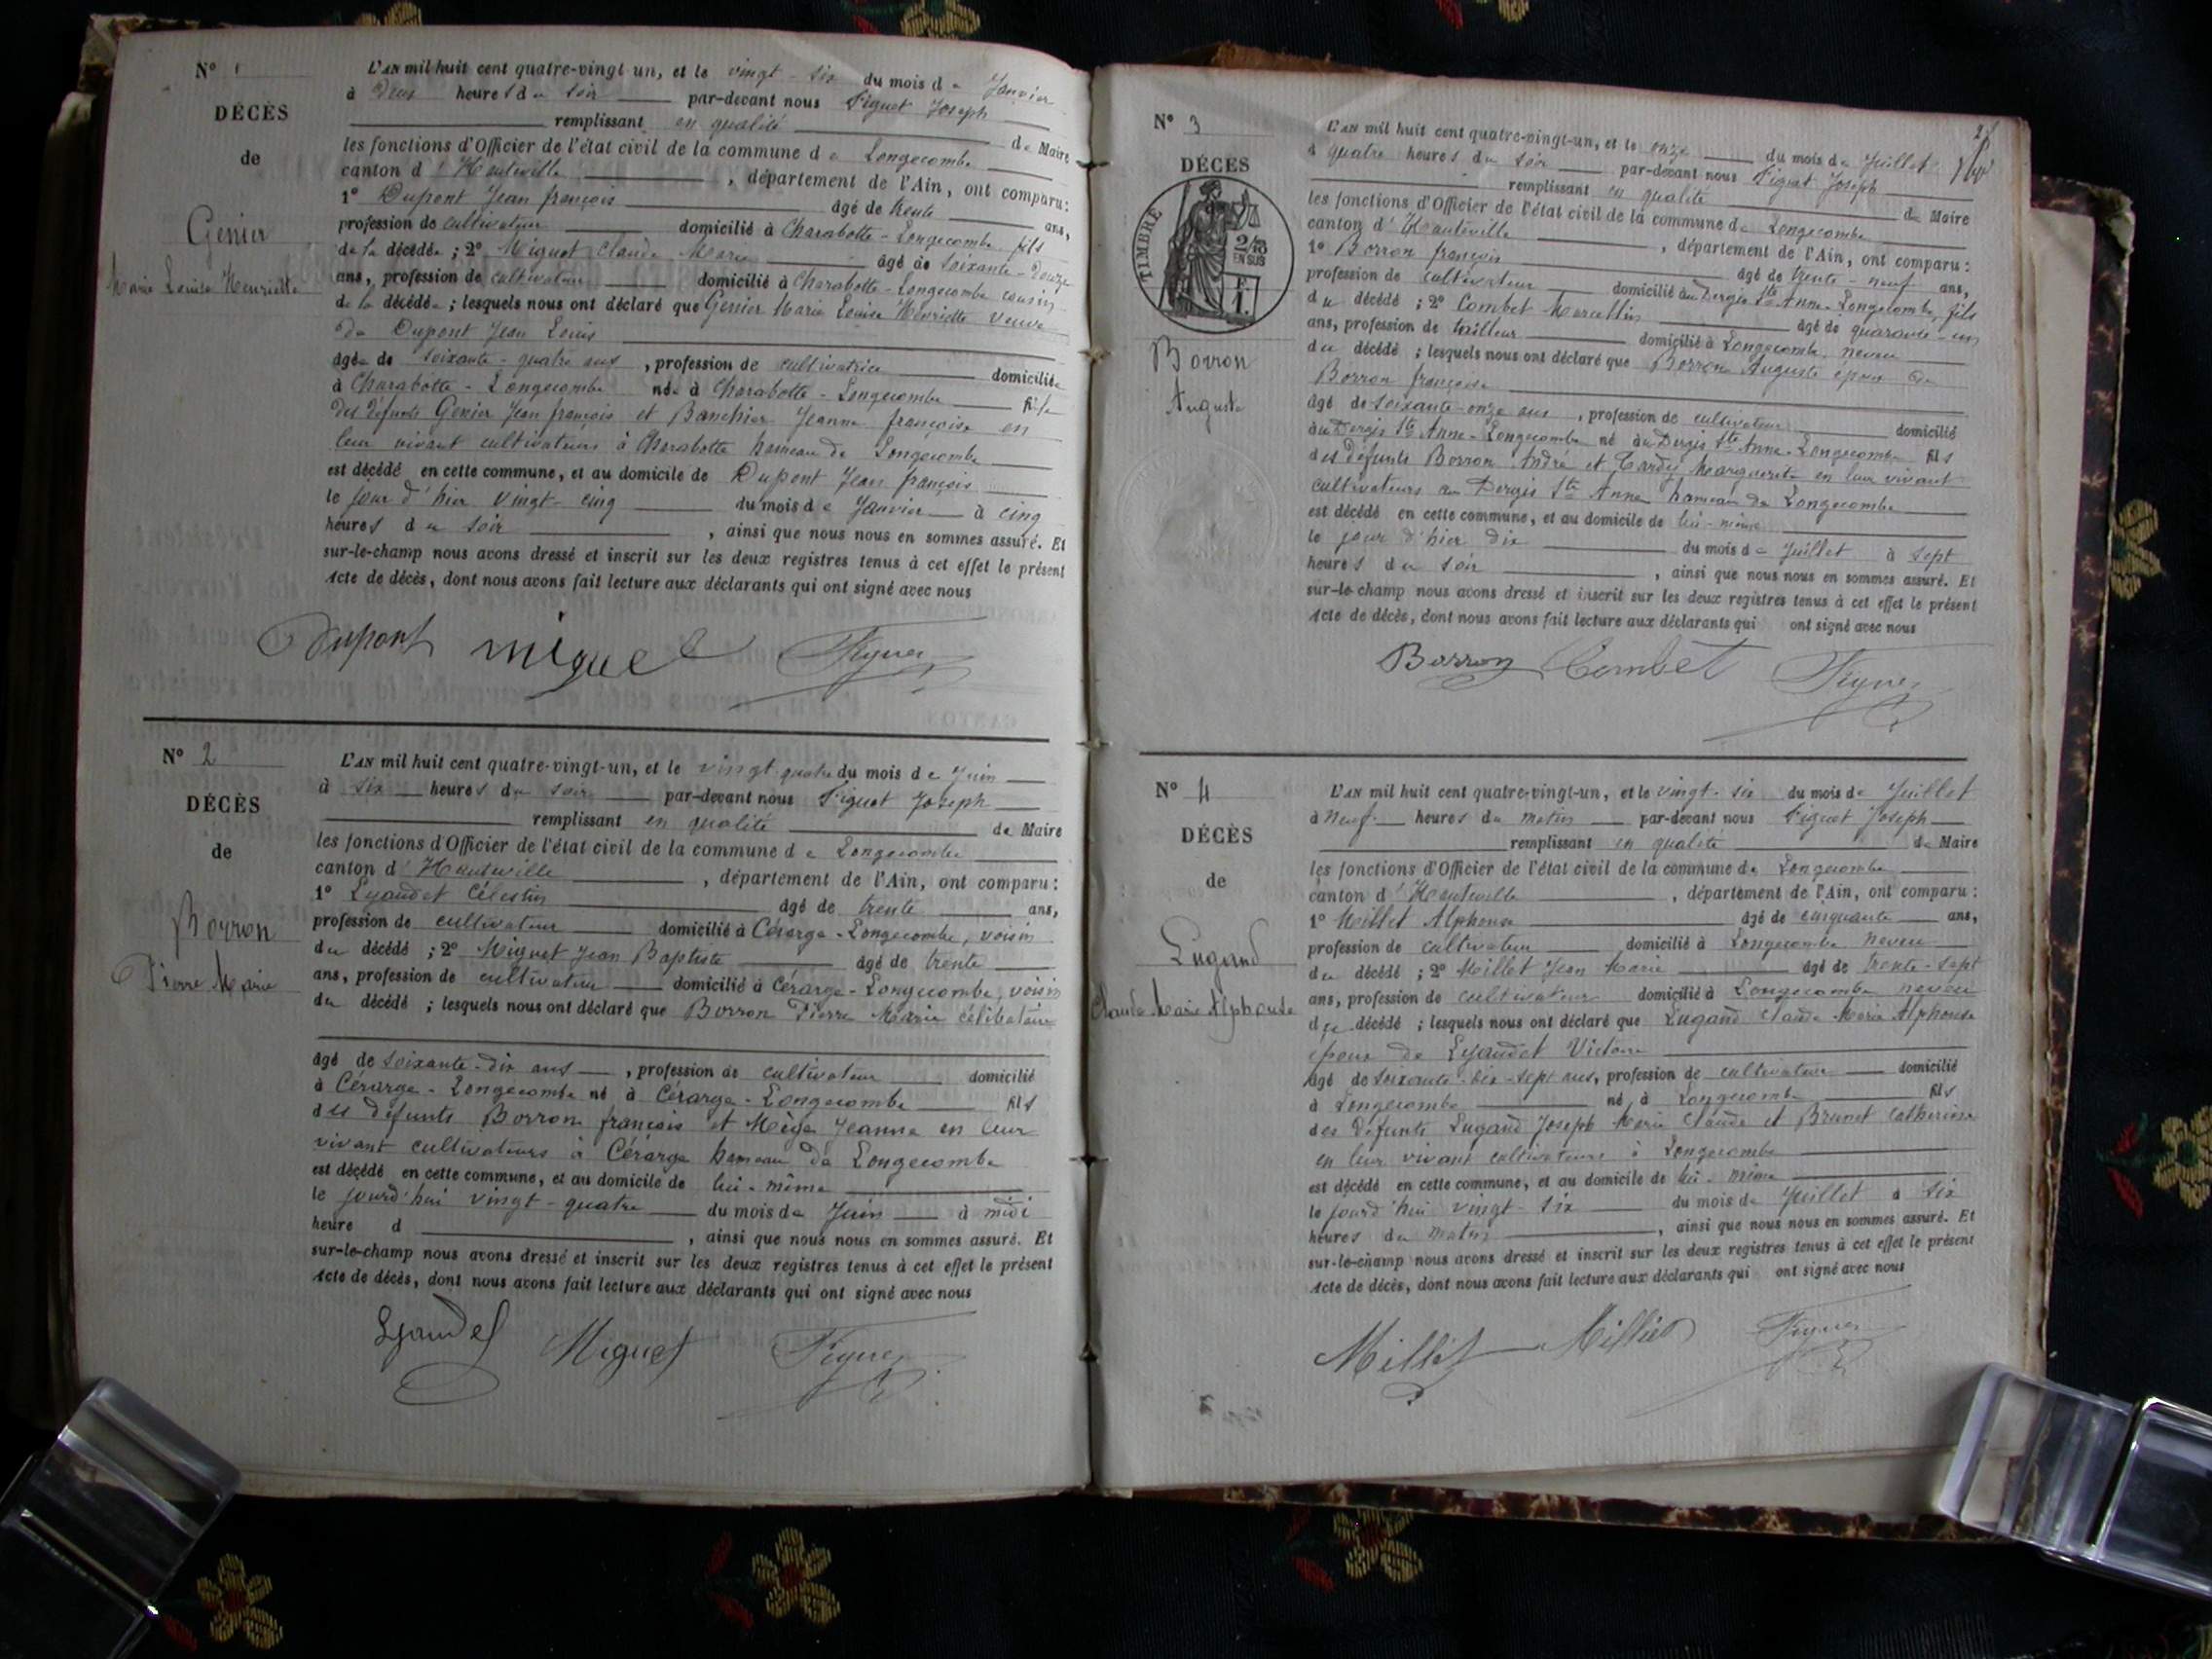 N° 1
DÉCÈS
de
Genier
Marie Louise Henriette
L'AN mil huit cent quatre-vingt un, et le vingt-six du mois de Janvier
à Deux heures du soir par-devant nous Figuet Joseph
remplissant en qualité de Maire
les fonctions d'Officier de l'état civil de la commune de Longecombe
canton d'Hauteville, département de l'Ain, ont comparu:
1° Dupont Jean françois âgé de trente ans,
profession de cultivateur domicilié à Charabotte-Longecombe, fils
de la décédée; 2° Miguet Claude Marie âgé de soixante-douze
ans, profession de cultivateur domicilié à Charabotte-Longecombe cousin
de la décédée; lesquels nous ont déclaré que Genier Marie Louise Henriette veuve
de Dupont Jean Louis
âgée de soixante-quatre ans, profession de cultivatrice domiciliée
à Charabotte-Longecombe née à Charabotte-Longecombe fille
des défunts Genier Jean françois et Banchier Jeanne françoise en
leur vivant cultivateurs à Charabotte hameau de Longecombe
est décédé en cette commune, et au domicile de Dupont Jean françois
le jour d'hier vingt-cinq du mois de Janvier à cinq
heures du soir, ainsi que nous nous en sommes assuré. Et
sur-le-champ nous avons dressé et inscrit sur les deux registres tenus à cet effet le présent
Acte de décès, dont nous avons fait lecture aux déclarants qui ont signé avec nous
Dupont miguet Figuet
N° 2
DÉCÈS
de
Borron
Pierre Marie
L'AN mil huit cent quatre-vingt-un, et le vingt quatre du mois de Juin
à six heures du soir par-devant nous Figuet Joseph
remplissant en qualité de Maire
les fonctions d'Officier de l'état civil de la commune de Longecombe
canton d'Hauteville, département de l'Ain, ont comparu:
1° Lyaudet Célestin âgé de trente ans,
profession de cultivateur domicilié à Cérarge-Longecombe, voisin
du décédé; 2° Miguet Jean Baptiste âgé de trente
ans, profession de cultivateur domicilié à Cérarge-Longecombe, voisin
du décédé; lesquels nous ont déclaré que Borron Pierre Marie célibataire
âgé de soixante-dix ans, profession de cultivateur domicilié
à Cérarge-Longecombe né à Cérarge-Longecombe fils
des défunts Borron françois et Mège Jeanne en leur
vivant cultivateurs à Cérarge hameau de Longecombe
est décédé en cette commune, et au domicile de lui-même
le jourd'hui vingt-quatre du mois de Juin à midi
heure d, ainsi que nous nous en sommes assuré. Et
sur-le-champ nous avons dressé et inscrit sur les deux registres tenus à cet effet le présent
Acte de décès, dont nous avons fait lecture aux déclarants qui ont signé avec nous
Lyaudet Miguet Figuet
N° 3
DÉCÈS
TIMBRE
2/10
EN SUS
Borron
Auguste
L'AN mil huit cent quatre-vingt-un, et le onze du mois de Juillet
à quatre heures du soir par-devant nous Figuet Joseph
remplissant en qualité de Maire
les fonctions d'Officier de l'état civil de la commune de Longecombe
canton d'Hauteville, département de l'Ain, ont comparu:
1° Borron françois âgé de trente-neuf ans,
profession de cultivateur domicilié au Dergis Ste Anne-Longecombe, fils
du décédé; 2° Combet Marcellin âgé de quarante-un
ans, profession de tailleur domicilié à Longecombe, neveu
du décédé; lesquels nous ont déclaré que Borron Auguste époux de
Borron françoise
âgé de soixante-onze ans, profession de cultivateur domicilié
au Dergis Ste Anne-Longecombe né au Dergis Ste Anne-Longecombe fils
des défunts Borron André et Tardy Marguerite en leur vivant
cultivateurs au Dergis Ste Anne hameau de Longecombe
est décédé en cette commune, et au domicile de lui-même
le jour d'hier dix du mois de Juillet à sept
heures du soir, ainsi que nous nous en sommes assuré. Et
sur-le-champ nous avons dressé et inscrit sur les deux registres tenus à cet effet le présent
Acte de décès, dont nous avons fait lecture aux déclarants qui ont signé avec nous
Borron Combet Figuet
N° 4
DÉCÈS
de
Lugand
Claude Marie Alphonse
L'AN mil huit cent quatre-vingt-un, et le vingt-six du mois de Juillet
à neuf heures du matin par-devant nous Figuet Joseph
remplissant en qualité de Maire
les fonctions d'Officier de l'état civil de la commune de Longecombe
canton d'Hauteville, département de l'Ain, ont comparu:
1° Millet Alphonse âgé de cinquante ans,
profession de cultivateur domicilié à Longecombe neveu
du décédé; 2° Millet Jean Marie âgé de trente-sept
ans, profession de cultivateur domicilié à Longecombe neveu
du décédé; lesquels nous ont déclaré que Lugand Claude Marie Alphonse
époux de Lyaudet Victoire
âgé de soixante-dix-sept ans, profession de cultivateur domicilié
à Longecombe né à Longecombe fils
des défunts Lugand Joseph Marie Claude et Brunet Catherine
en leur vivant cultivateurs à Longecombe
est décédé en cette commune, et au domicile de lui-même
le jourd'hui vingt-six du mois de Juillet à six
heures du matin, ainsi que nous nous en sommes assuré. Et
sur-le-champ nous avons dressé et inscrit sur les deux registres tenus à cet effet le présent
Acte de décès, dont nous avons fait lecture aux déclarants qui ont signé avec nous
Millet Millet Figuet